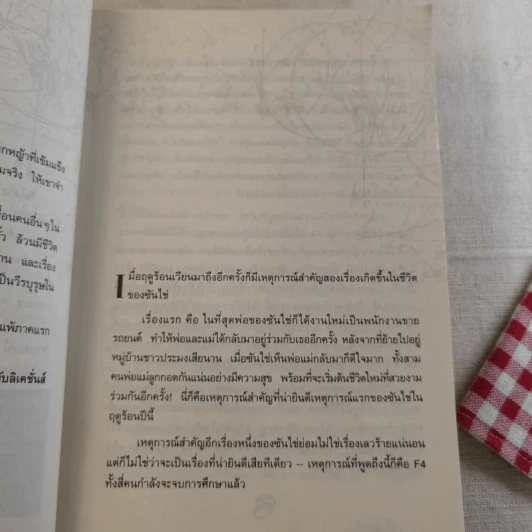 กหญ้าที่เข้มแข็ง
มจริง ให้เขาจำ
อื่นคนอื่นๆใน
ล้วนมีชีวิต
และเรื่อง
ป็นวีรบุรุษใน
แพ้ภาคแรก
บลิเคชั่นส์
เมื่อฤดูร้อนเวียนมาถึงอีกครั้งก็มีเหตุการณ์สำคัญสองเรื่องเกิดขึ้นในชีวิต
ของซันไช่
เรื่องแรก คือ ในที่สุดพ่อของซันไช่ก็ได้งานใหม่เป็นพนักงานขาย
รถยนต์ ทำให้พ่อและแม่ได้กลับมาอยู่ร่วมกับเธออีกครั้ง หลังจากที่ย้ายไปอยู่
หมู่บ้านชาวประมงเสียนาน เมื่อซันไช่เห็นพ่อแม่กลับมาก็ดีใจมาก ทั้งสาม
คนพ่อแม่ลูกกอดกันแน่นอย่างมีความสุข พร้อมที่จะเริ่มต้นชีวิตใหม่ที่สวยงาม
ร่วมกันอีกครั้ง! นี่ก็คือเหตุการณ์สำคัญที่น่ายินดีเหตุการณ์แรกของซันไช่ใน
ฤดูร้อนปีนี้
เหตุการณ์สำคัญอีกเรื่องหนึ่งของซันไช่ย่อมไม่ใช่เรื่องเลวร้ายแน่นอน
แต่ก็ไม่ใช่ว่าจะเป็นเรื่องที่น่ายินดีเสียทีเดียว -- เหตุการณ์ที่พูดถึงนี้ก็คือ F4
ทั้งสี่คนกำลังจะจบการศึกษาแล้ว